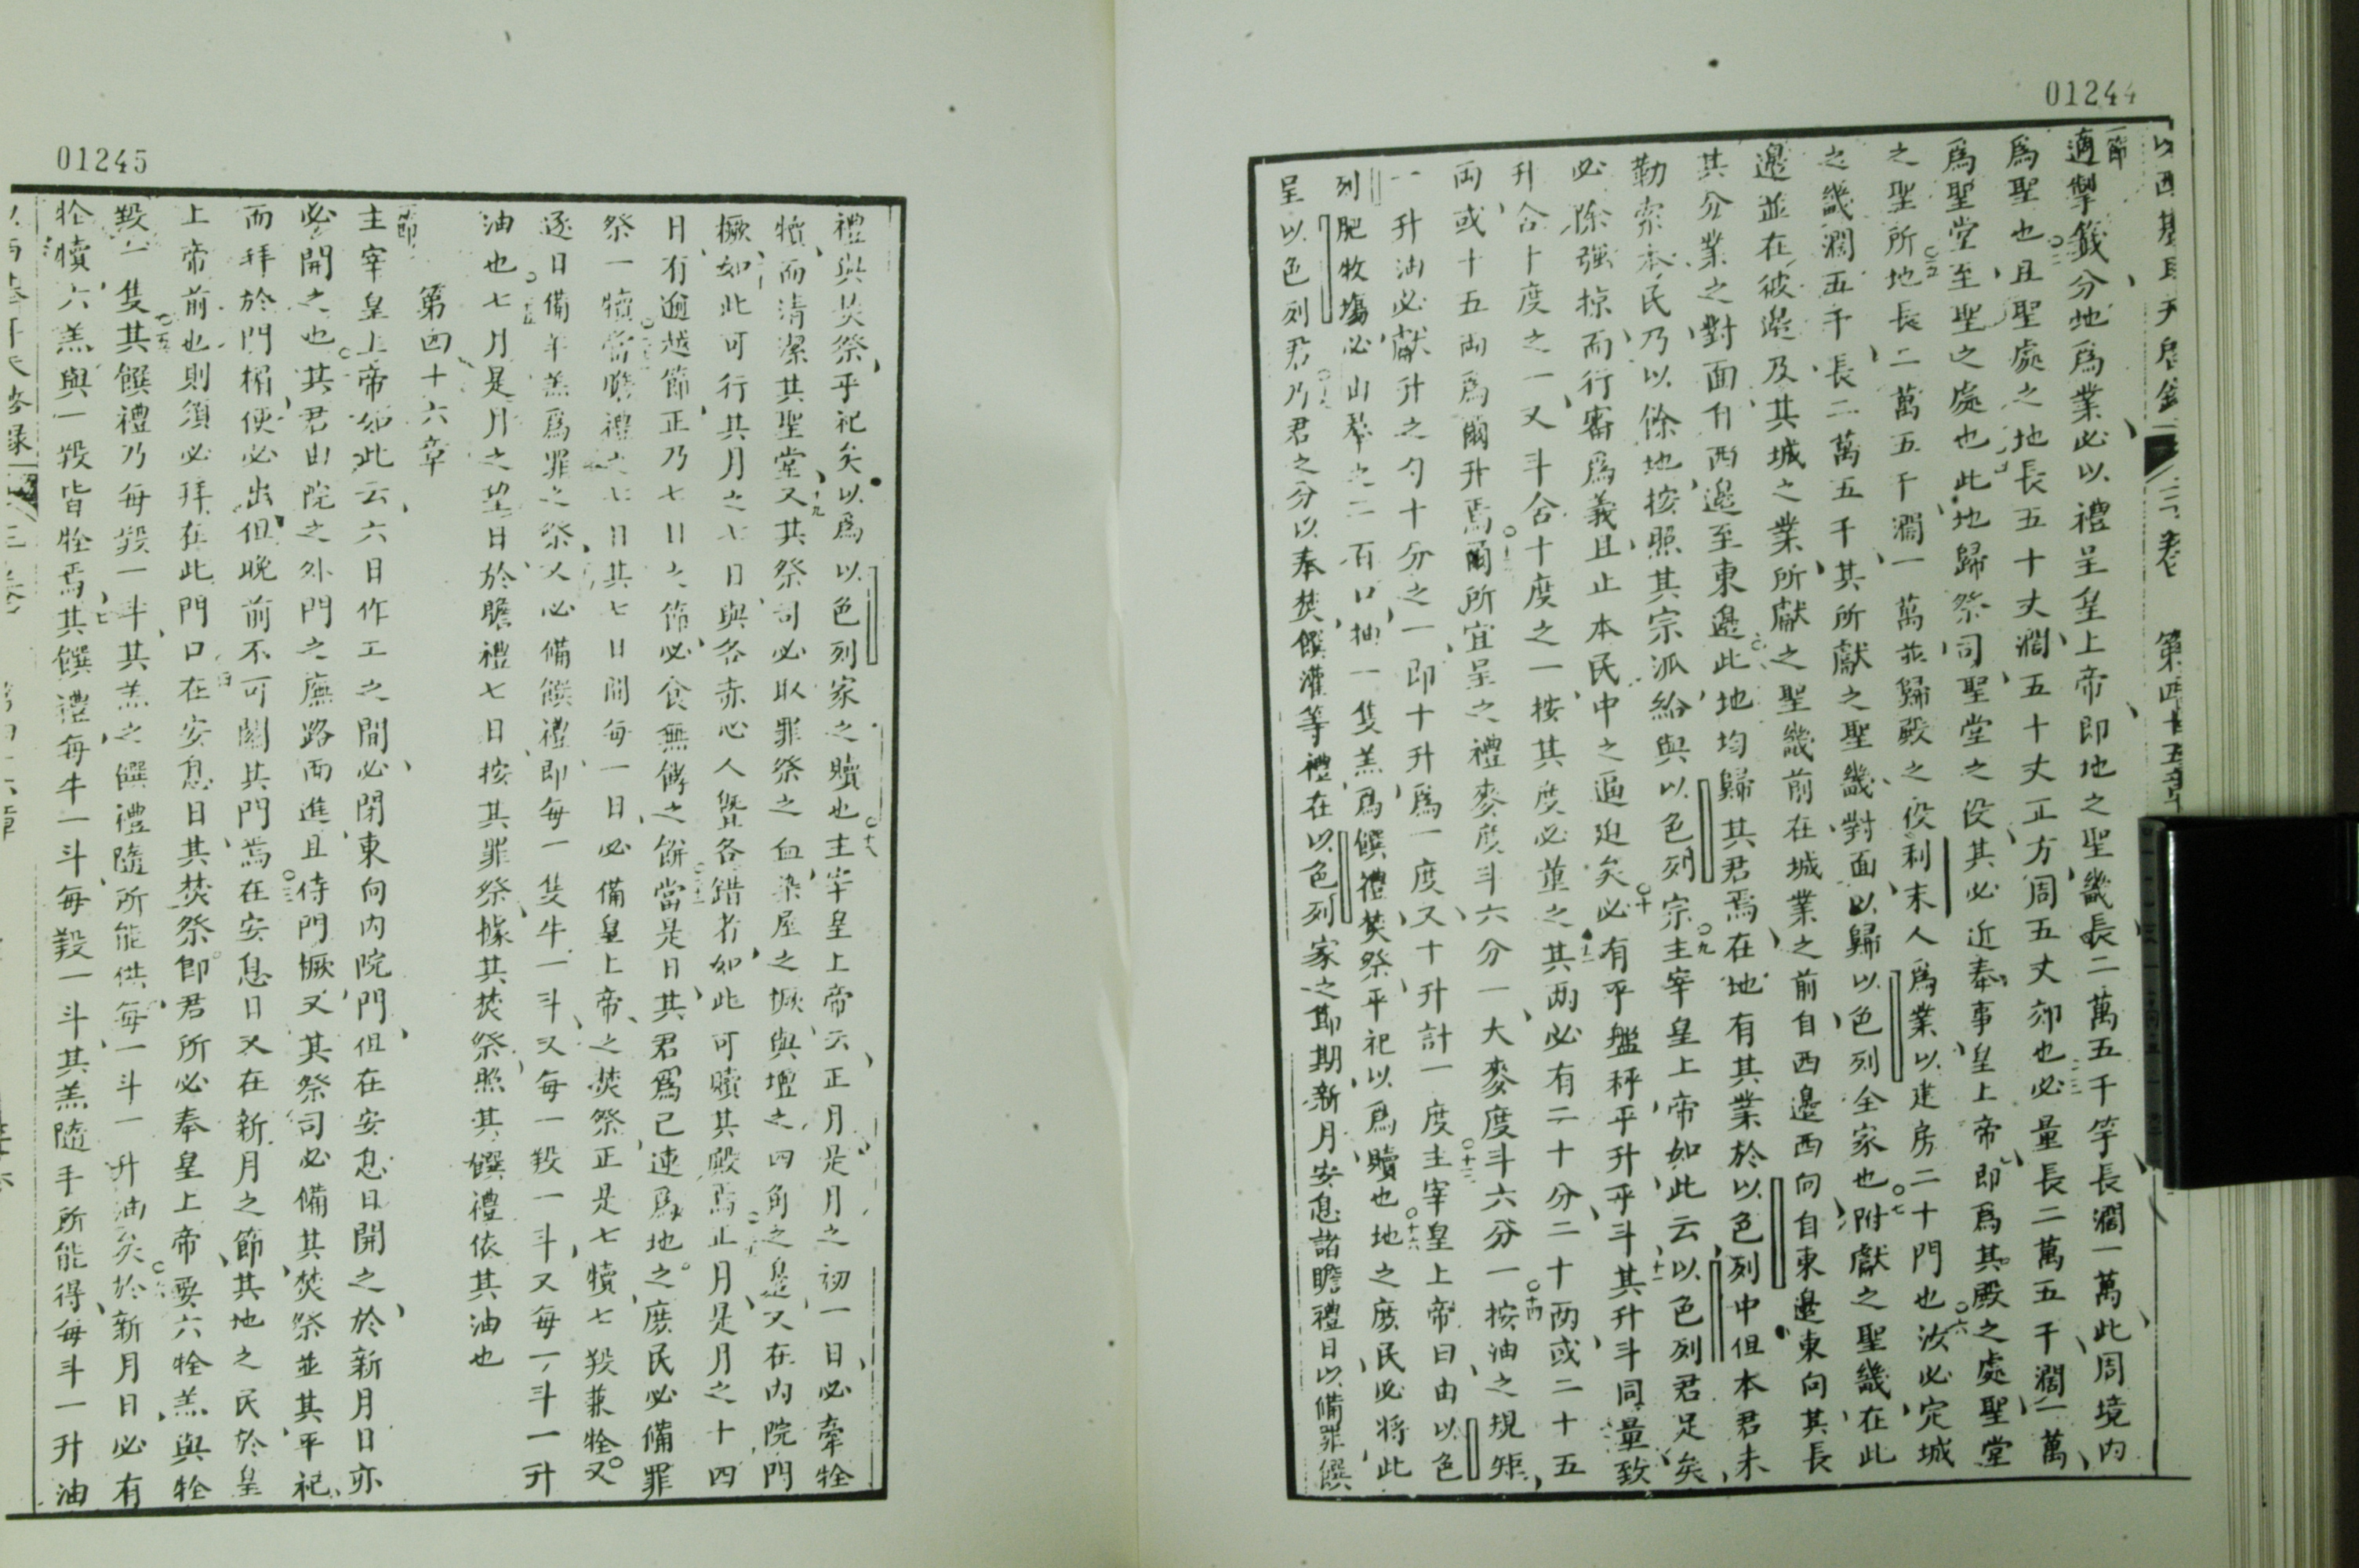 01244
第四十五章
一節
適掣籤分地爲業必以禮呈皇上帝即地之聖畿長二萬五千竿長濶一萬此周境内
爲聖也且聖處之地長五十丈濶五十丈正方周五丈郊也必量長二萬五千濶一萬
爲聖堂至聖之處也此地歸祭司聖堂之役其必近奉事皇上帝即爲其殿之處聖堂
之聖所地長二萬五千濶一萬並歸殿之役利未人爲業以建房二十門也汝必定城
之畿濶五千長二萬五千其所獻之聖畿對面以歸以色列全家也附獻之聖畿在此
邊並在彼邊及其城之業所獻之聖畿前在城業之前自西邊西向自東邊東向其長
其分業之對面自西邊至東邊此地均歸其君焉在地有其業於以色列中但本君未
勒索本民乃以餘地按照其宗派給與以色列宗主宰皇上帝如此云以色列君足矣
必除强掠而行審爲義且止本民中之逼迫矣必有平盤秤平升平斗其升斗同量致
升合十度之一又斗合十度之一按其度必量之其两必有二十分二十两或二十五
两或十五两爲爾升焉爾所宜呈之禮麥度斗六分一大麥度斗六分一按油之規矩
一升油必獻升之勺十分之一即十升爲一度又十升計一度主宰皇上帝曰由以色
列肥牧塲必由羣之二百口抽一隻羔爲饌禮焚祭平祀以爲贖也地之庶民必將此
呈以色列君乃君之分以奉焚饌灌等禮在以色列家之節期新月安息諸瞻禮日以備罪饌
01245
禮與焚祭乎祀矣以爲以色列家之贖也主宰皇上帝云正月是月之初一日必牽牷
犢而清潔其聖堂又其祭司必取罪祭之血染屋之橛與壇之四角之是又在内院門
橛如此可行其月之七日與各赤心人曁各錯者如此可贖其殿焉正月是月之十四
日有逾越節正乃七日之節必食無酵之餅當是日其君爲己連爲地之庶民必備罪
祭一犢當瞻禮之七日其七日間每一日必備皇上帝之焚祭正是七犢七羖兼牷又
逐日備羊羔爲罪之祭又必備饌禮即每一隻牛一斗又每一羖一斗又每一斗一升
油也七月是月之望日於瞻禮七日按其罪祭據其焚祭照其饌禮依其油也
第四十六章
一節
主宰皇上帝如此云六日作工之間必閉東向内院門但在安息日開之於新月日亦
必開之也其君由院之外門之廡路而進且侍門橛又其祭司必備其焚祭並其平祀
而拜於門楣便必出但晚前不可關其門焉在安息日又在新月之節其地之民於皇
上帝前也則須必拜在此門口在安息日其焚祭即君所必奉皇上帝要六牷羔與牷
羖一隻其饌禮乃每羖一斗其羔之饌禮隨所能供每一斗一升油矣於新月日必有
牷犢六羔與一羖皆牷焉其饌禮每牛一斗每羖一斗其羔隨手所能得每斗一升油